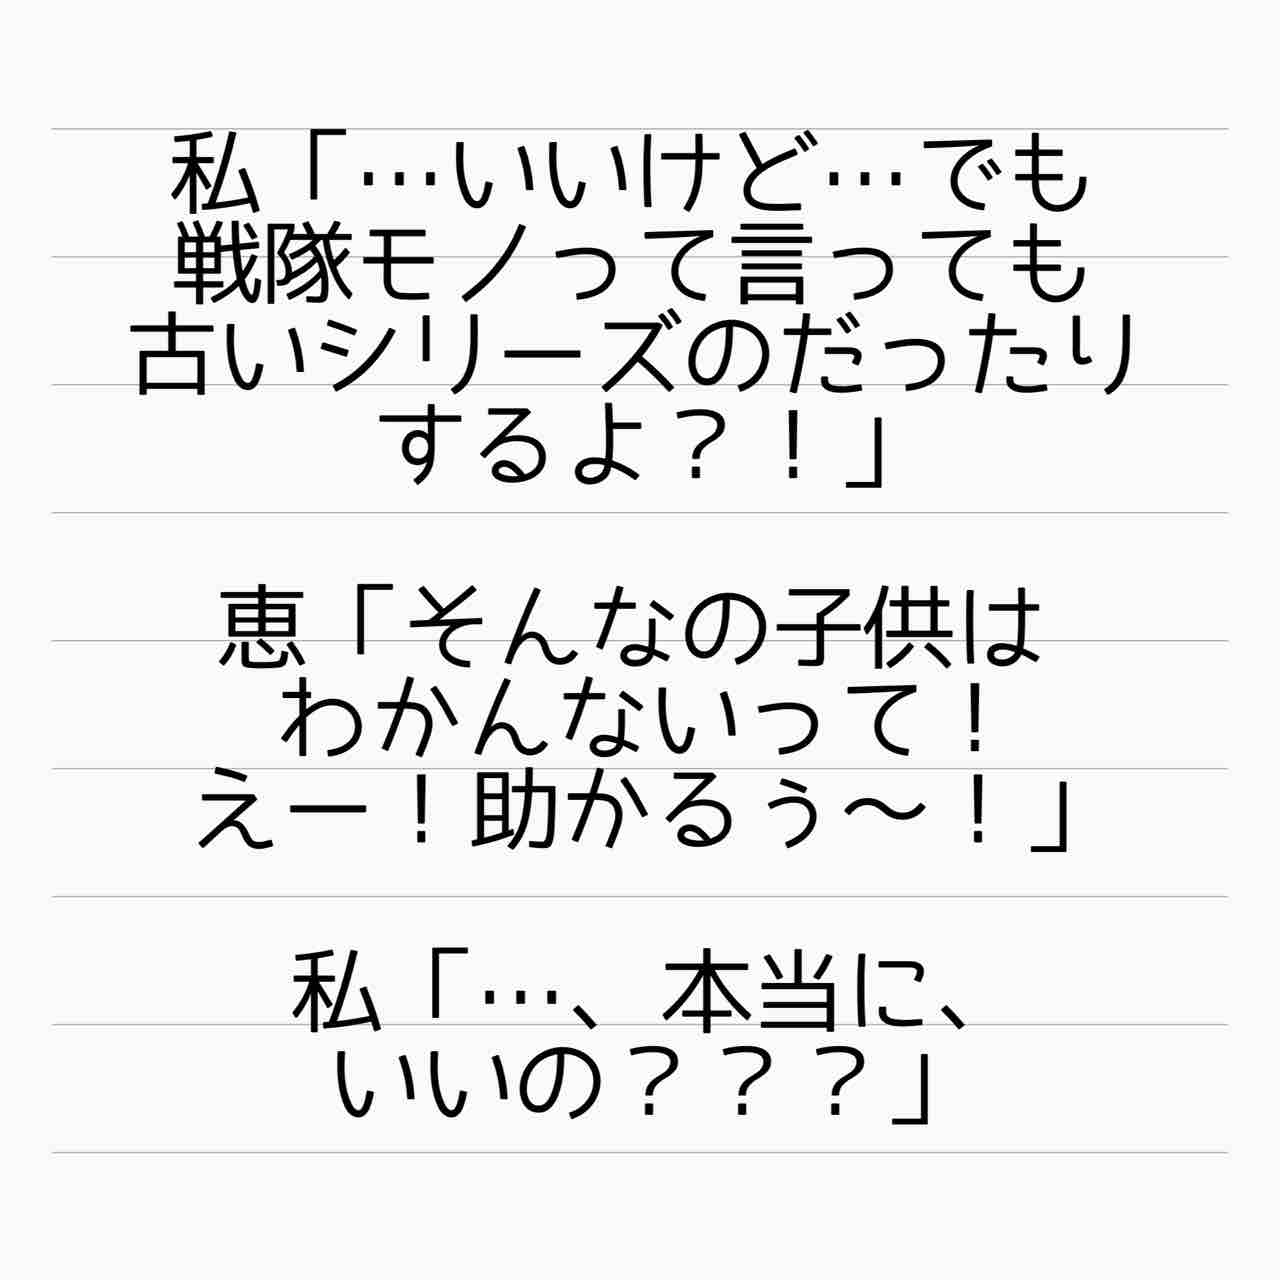 私「…いいけど…でも
戦隊モノって言っても
古いシリーズのだったり
するよ？！」
恵「そんなの子供は
わかんないって！
えー！助かるぅ〜！」
私「…、本当に、
いいの？？？」